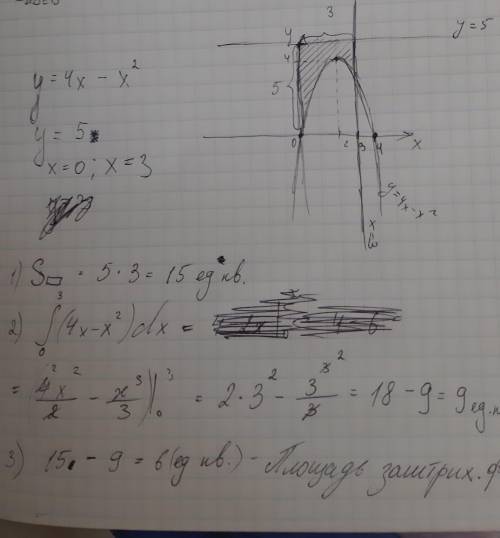 3
y
y = 5
4
5
y = 4x - x²
y = 5
x = 0 ; x = 3
0 2 3 4 x
y = 4x - x²
x = 3
1) S▭ = 5 · 3 = 15 ед кв.
2) ∫₀³ (4x - x²) dx =
= 4²x²/2 - x³/3 |₀³ = 2 · 3² - 3³/3 = 18 - 9 = 9 ед.к
3) 15 - 9 = 6 (ед кв.) - Площадь заштрих. ф